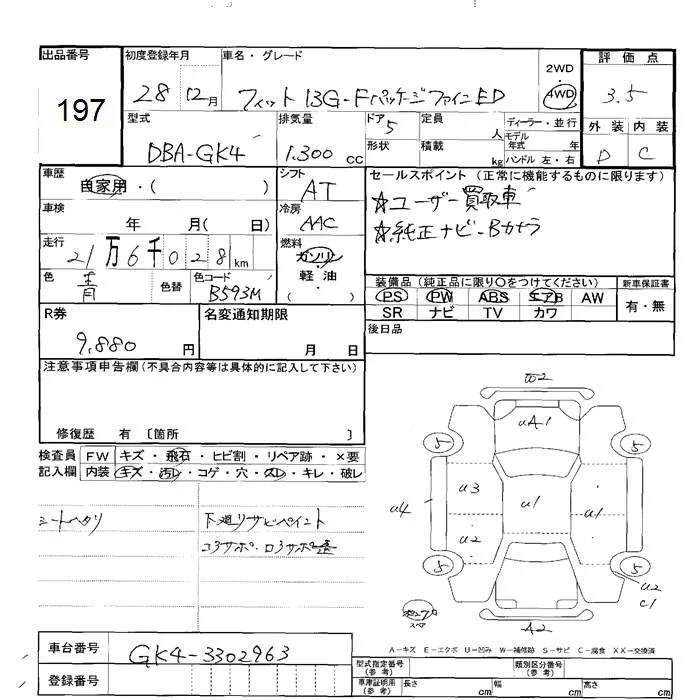 出品番号 初度登録年月 車名・グレード 評価点
197
28 12月 フィット 13G・Fパッケージファインエディ 2WD・4WD 3.5
型式 排気量 ドア 5 定員 人 ディーラー・並行 外装 内装
DBA-GK4 1.300 CC 形状 積載 kg モデル年式 年式 ハンドル 左・右 D C
車歴 自家用・( ) シフト AT セールスポイント (正常に機能するものに限ります)
☆ユーザー買取車
車検 年 月( 日) 冷房 AAC ☆純正ナビ-Bカメラ
走行 21万6千028km 燃料 ガソリン・軽油・( )
色 青 色替 色コード B593M
装備品 (純正品に限り○をつけてください) 新車保証書
PS PW ABS エアB AW 有・無
SR ナビ TV カワ
R券 9,880 円 名変通知期限 月 日 後日品
注意事項申告欄(不具合内容等は具体的に記入して下さい)
修復歴 有 〔箇所 〕
検査員 FW キズ・飛石・ヒビ割・リペア跡・×要
記入欄 内装 キズ・汚れ・コゲ・穴・スレ・キレ・破レ
シートヘタリ 下廻りサビペイント
コアサポ・ロアサポ歪
W2
UA1
5 5
U3 U1 U1
U4 U2
5 5
U2
C1
スペア
A2
A-キズ E-エクボ U-凹み W-補修跡 S-サビ C-腐食 XX-交換済
車台番号 GK4-3302963 型式指定番号(参考) 類別区分番号(参考)
登録番号 車庫証明用(参考) 長さ cm 幅 cm 高さ cm